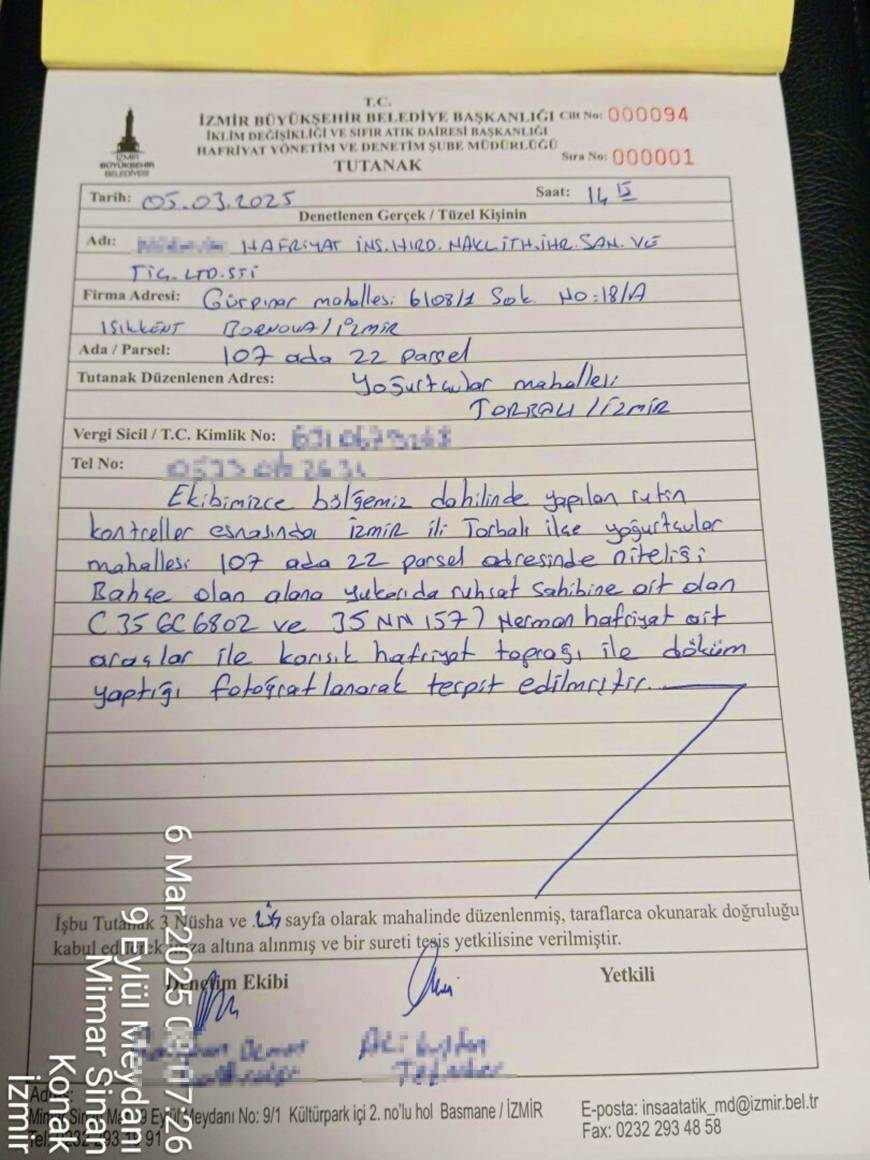 T.C.
İZMİR BÜYÜKŞEHİR BELEDİYE BAŞKANLIĞI Cilt No: 000094
İKLİM DEĞİŞİKLİĞİ VE SIFIR ATIK DAİRESİ BAŞKANLIĞI
HAFRİYAT YÖNETİM VE DENETİM ŞUBE MÜDÜRLÜĞÜ
Sıra No: 000001
TUTANAK
İZMİR
BÜYÜKŞEHİR
BELEDİYESİ
Tarih: 05.03.2025 Saat: 14 15
Denetlenen Gerçek / Tüzel Kişinin
Adı: HAFRİYAT İNŞ. HIRD. NAKL İTH. İHR. SAN. VE
TİC. LTD. ŞTİ
Firma Adresi: Gürpınar mahallesi 6108/1 Sok. NO: 18/A
IŞIKKENT BORNOVA / İZMİR
Ada / Parsel: 107 ada 22 parsel
Tutanak Düzenlenen Adres: Yoğurtcular mahallesi
TORBALI / İZMİR
Vergi Sicil / T.C. Kimlik No:
Tel No:
Ekibimizce bölgemiz dahilinde yapılan rutin
kontroller esnasında İzmir ili Torbalı ilçe yoğurtcular
mahallesi 107 ada 22 parsel adresinde niteliği
Bahçe olan alana yukarıda ruhsat sahibine ait olan
C 35 GC 6802 ve 35 NN 1577 Herman hafriyat ait
araçlar ile karışık hafriyat toprağı ile döküm
yaptığı fotoğraflanarak tespit edilmiştir.
İşbu Tutanak 3 Nüsha ve sayfa olarak mahalinde düzenlenmiş, taraflarca okunarak doğruluğu
kabul edilerek imza altına alınmış ve bir sureti tesis yetkilisine verilmiştir.
Denetim Ekibi Yetkili
Mimar Sinan Mah. 9 Eylül Meydanı No: 9/1 Kültürpark içi 2. no'lu hol Basmane / İZMİR
E-posta: insaatatik_md@izmir.bel.tr
Fax: 0232 293 48 58
6 Mar 2025 09:07:26
9 Eylül Meydanı
Mimar Sinan
Konak
İzmir